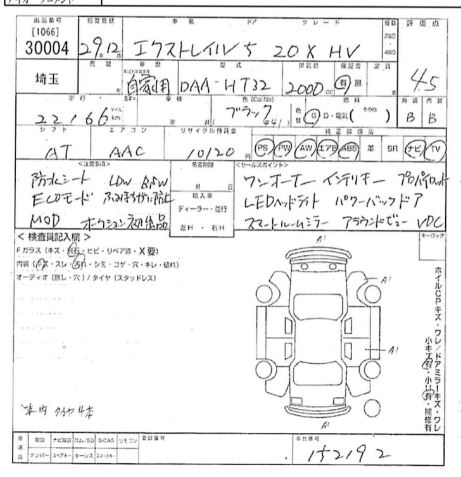 出品番号 初度登録 車名 ドア グレード 評価点
[1066]
30004 29.12 エクストレイル 5 20X HV
2WD
4WD
埼玉 自家用 DAA-HT32 2000 有 無 4.5
車歴 型式 排気量
22,166 ブラック D・電気( ) B B
走行 車検 色(Col No) 燃料 外装 内装
シフト エアコン リサイクル預託金 純正装備品
AT AAC 10120 PS PW AW エアB ABS 革 SR ナビ TV
<注意事項> 名変期限 <セールスポイント>
防水シート LDW BSW 月 日 ワンオーナー インテリキー プロパイロット
ECOモード ふみまちがい防止 輸入車 LEDヘッドライト パワーバックドア
MOD オークション初出品 ディーラー・並行 スマートルームミラー アラウンドビュー VDC
左H ・ 右H
<検査員記入欄> キーロック
Fガラス(キズ・飛石・ヒビ・リペア跡・X要)
内装(キズ・スレ・汚れ・シミ・コゲ・穴・キレ・破れ)
オーディオ(無し・穴)/タイヤ(スタッドレス)
A1
A1
A1
A1
ホイルCPキズ・ワレ/ドアミラーキズ・ワレ
小キズ有・小凹有・補修有
車内 タイヤ4本
取説 ナビ取説 ロム/SD B-CAS リモコン 登録番号 車台番号
ナンバー スペアキー
152192